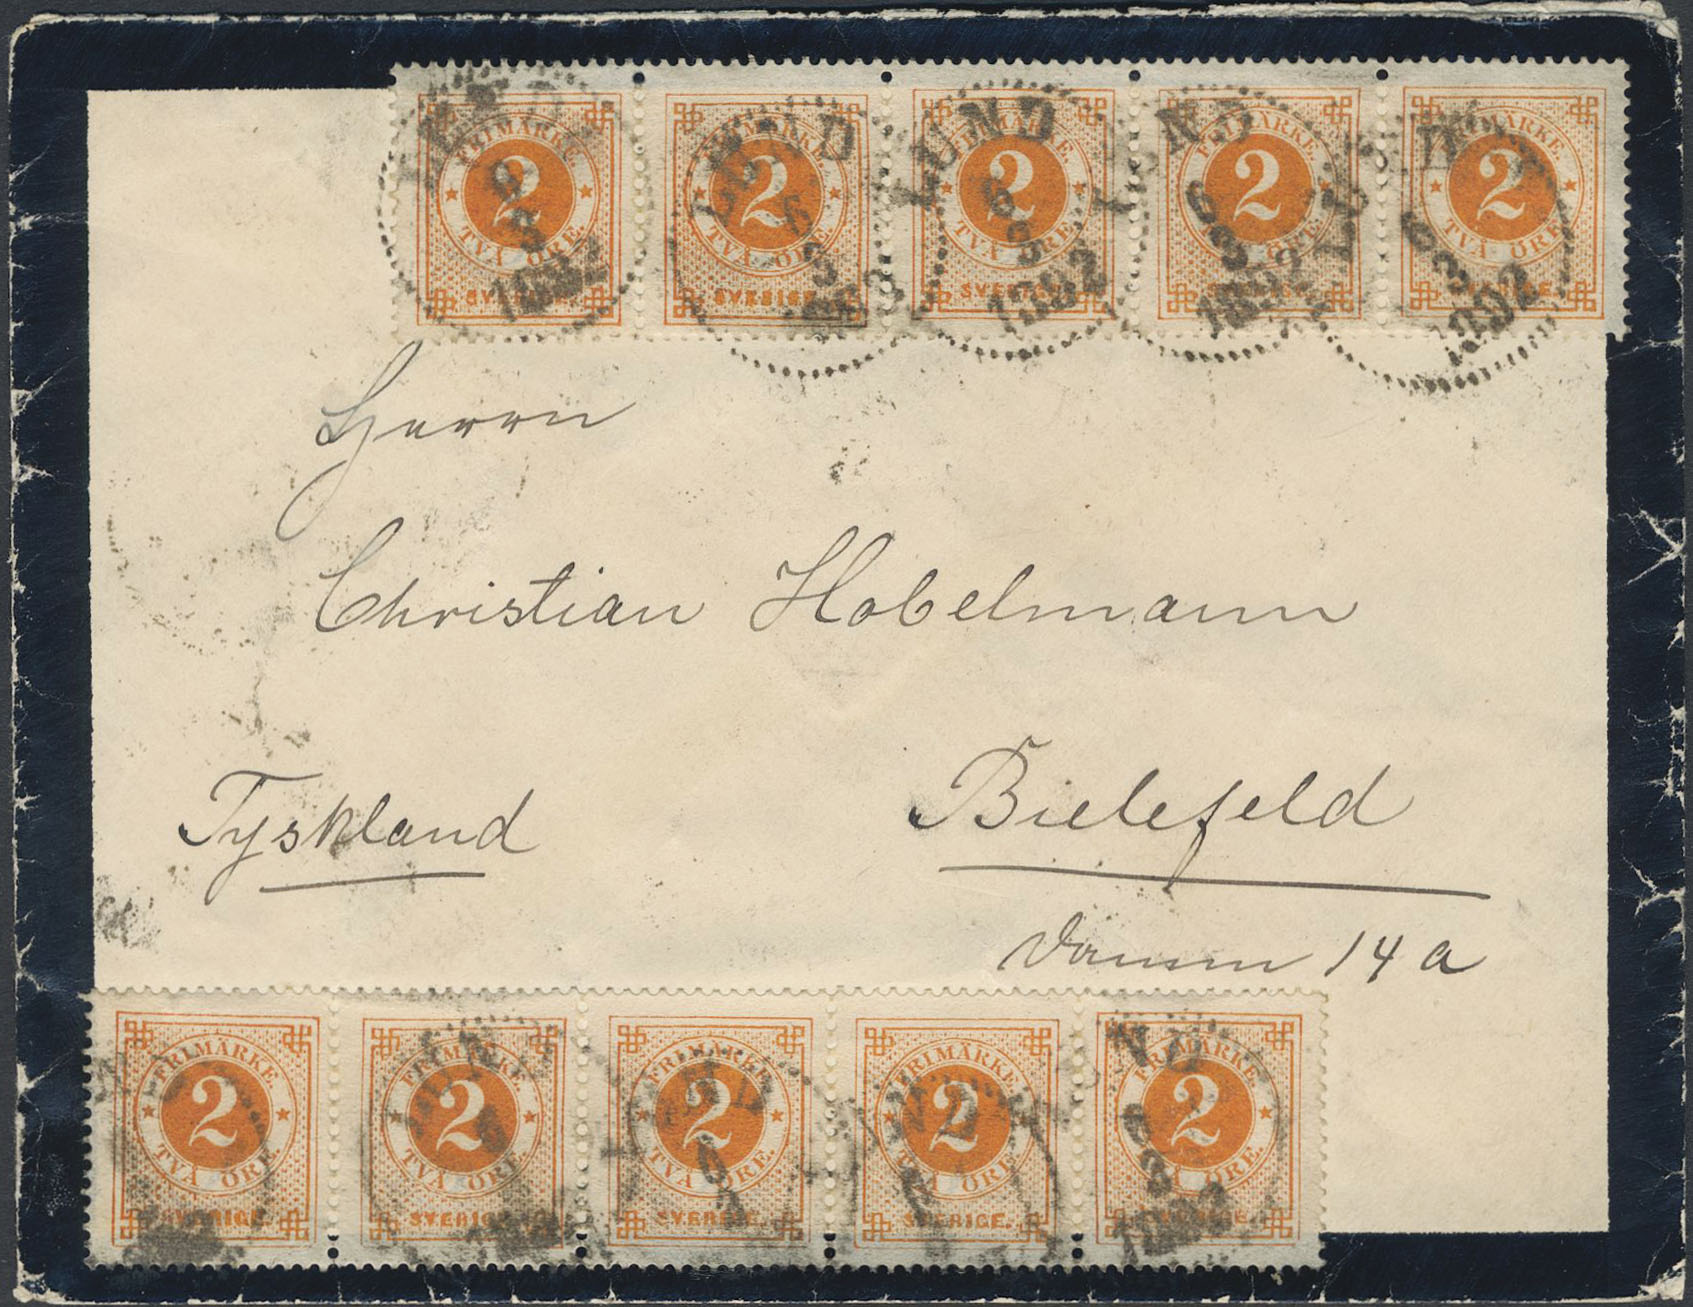 FRIMÄRKE 2 TVÅ ÖRE. SVERIGE.
FRIMÄRKE 2 TVÅ ÖRE. SVERIGE.
FRIMÄRKE 2 TVÅ ÖRE. SVERIGE.
FRIMÄRKE 2 TVÅ ÖRE. SVERIGE.
FRIMÄRKE 2 TVÅ ÖRE. SVERIGE.
LUND 6 3 1892
LUND 6 3 1892
LUND 6 3 1892
LUND 6 3 1892
LUND 6 3 1892
Herrn
Christian Hobelmann
Tyskland
Bielefeld
Damm 14 a
FRIMÄRKE 2 TVÅ ÖRE. SVERIGE.
FRIMÄRKE 2 TVÅ ÖRE. SVERIGE.
FRIMÄRKE 2 TVÅ ÖRE. SVERIGE.
FRIMÄRKE 2 TVÅ ÖRE. SVERIGE.
FRIMÄRKE 2 TVÅ ÖRE. SVERIGE.